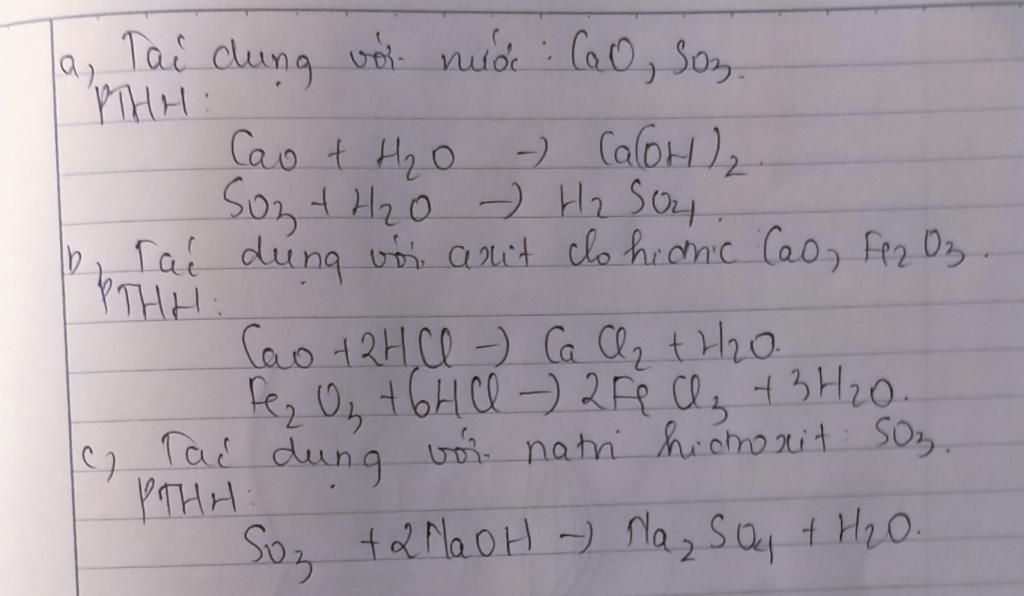 a, Tác dụng với nước: CaO, SO3.
PTHH:
CaO + H2O → Ca(OH)2.
SO3 + H2O → H2SO4.
b, Tác dụng với axit clohiđric CaO, Fe2O3.
PTHH:
CaO + 2HCl → CaCl2 + H2O.
Fe2O3 + 6HCl → 2FeCl3 + 3H2O.
c, Tác dụng với natri hiđroxit: SO3.
PTHH:
SO3 + 2NaOH → Na2SO4 + H2O.